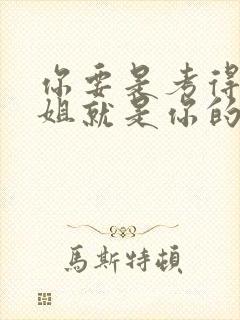 你要是考得
姐就是你的
馬斯特頓